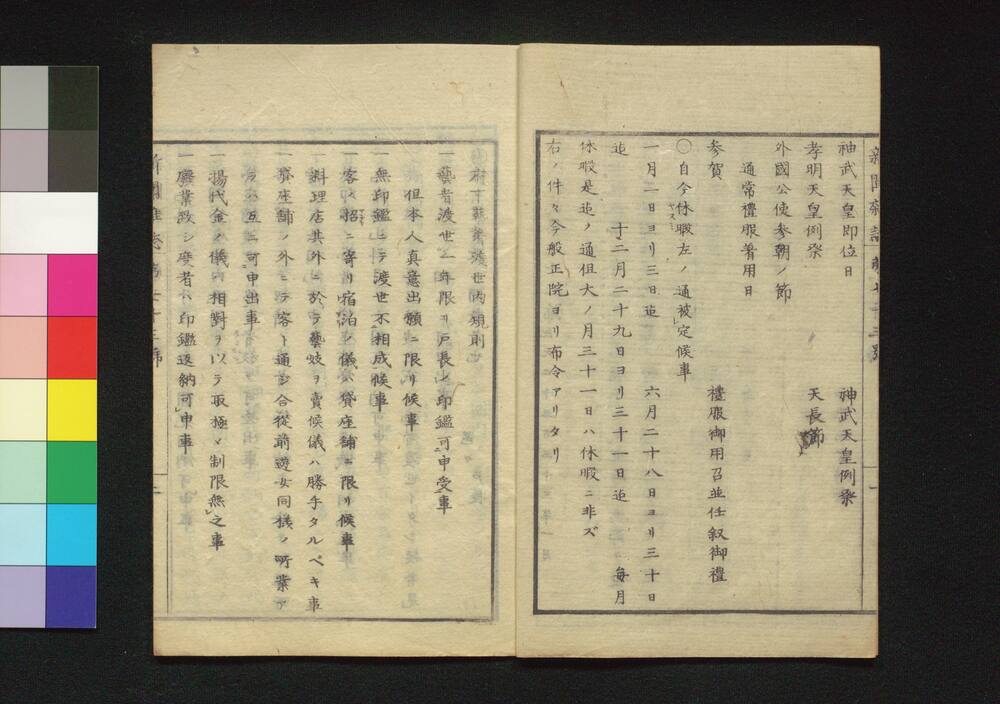 新聞雑誌
神武天皇即位日　神武天皇例祭
孝明天皇例祭　天長節
外國公使参朝ノ節
通常禮服着用日
参賀　禮服御用召並任叙御禮
〇自今休暇左ノ通被定候事
一月一日ヨリ三日迄　六月二十八日ヨリ三十日
迄　十二月二十九日ヨリ三十一日迄　毎月
休暇是迄ノ通但大ノ月三十一日ハ休暇ニ非ズ
右ノ件々今般正院ヨリ布令アリタリ
府下藝者渡世内規則
一藝者渡世ハ一年限リ戸長ヒ印鑑可申受事
但本人真意出願ニ限リ候事
一無印鑑ニテ渡世不相成候事
一客ノ招ニ寄リ宿泊ノ儀ハ貸座舗ニ限リ候事
一料理店其外ニ於テ藝妓ヲ賣候儀ハ勝手タルベキ事
一貸座舗ノ外ニテ客ト通シ合從前遊女同様ノ所業ア
互ニ可申出事
一揚代金ノ儀ハ相對ヲ以テ取極メ制限無之事
一廢業致シ度者ハ印鑑返納可申事